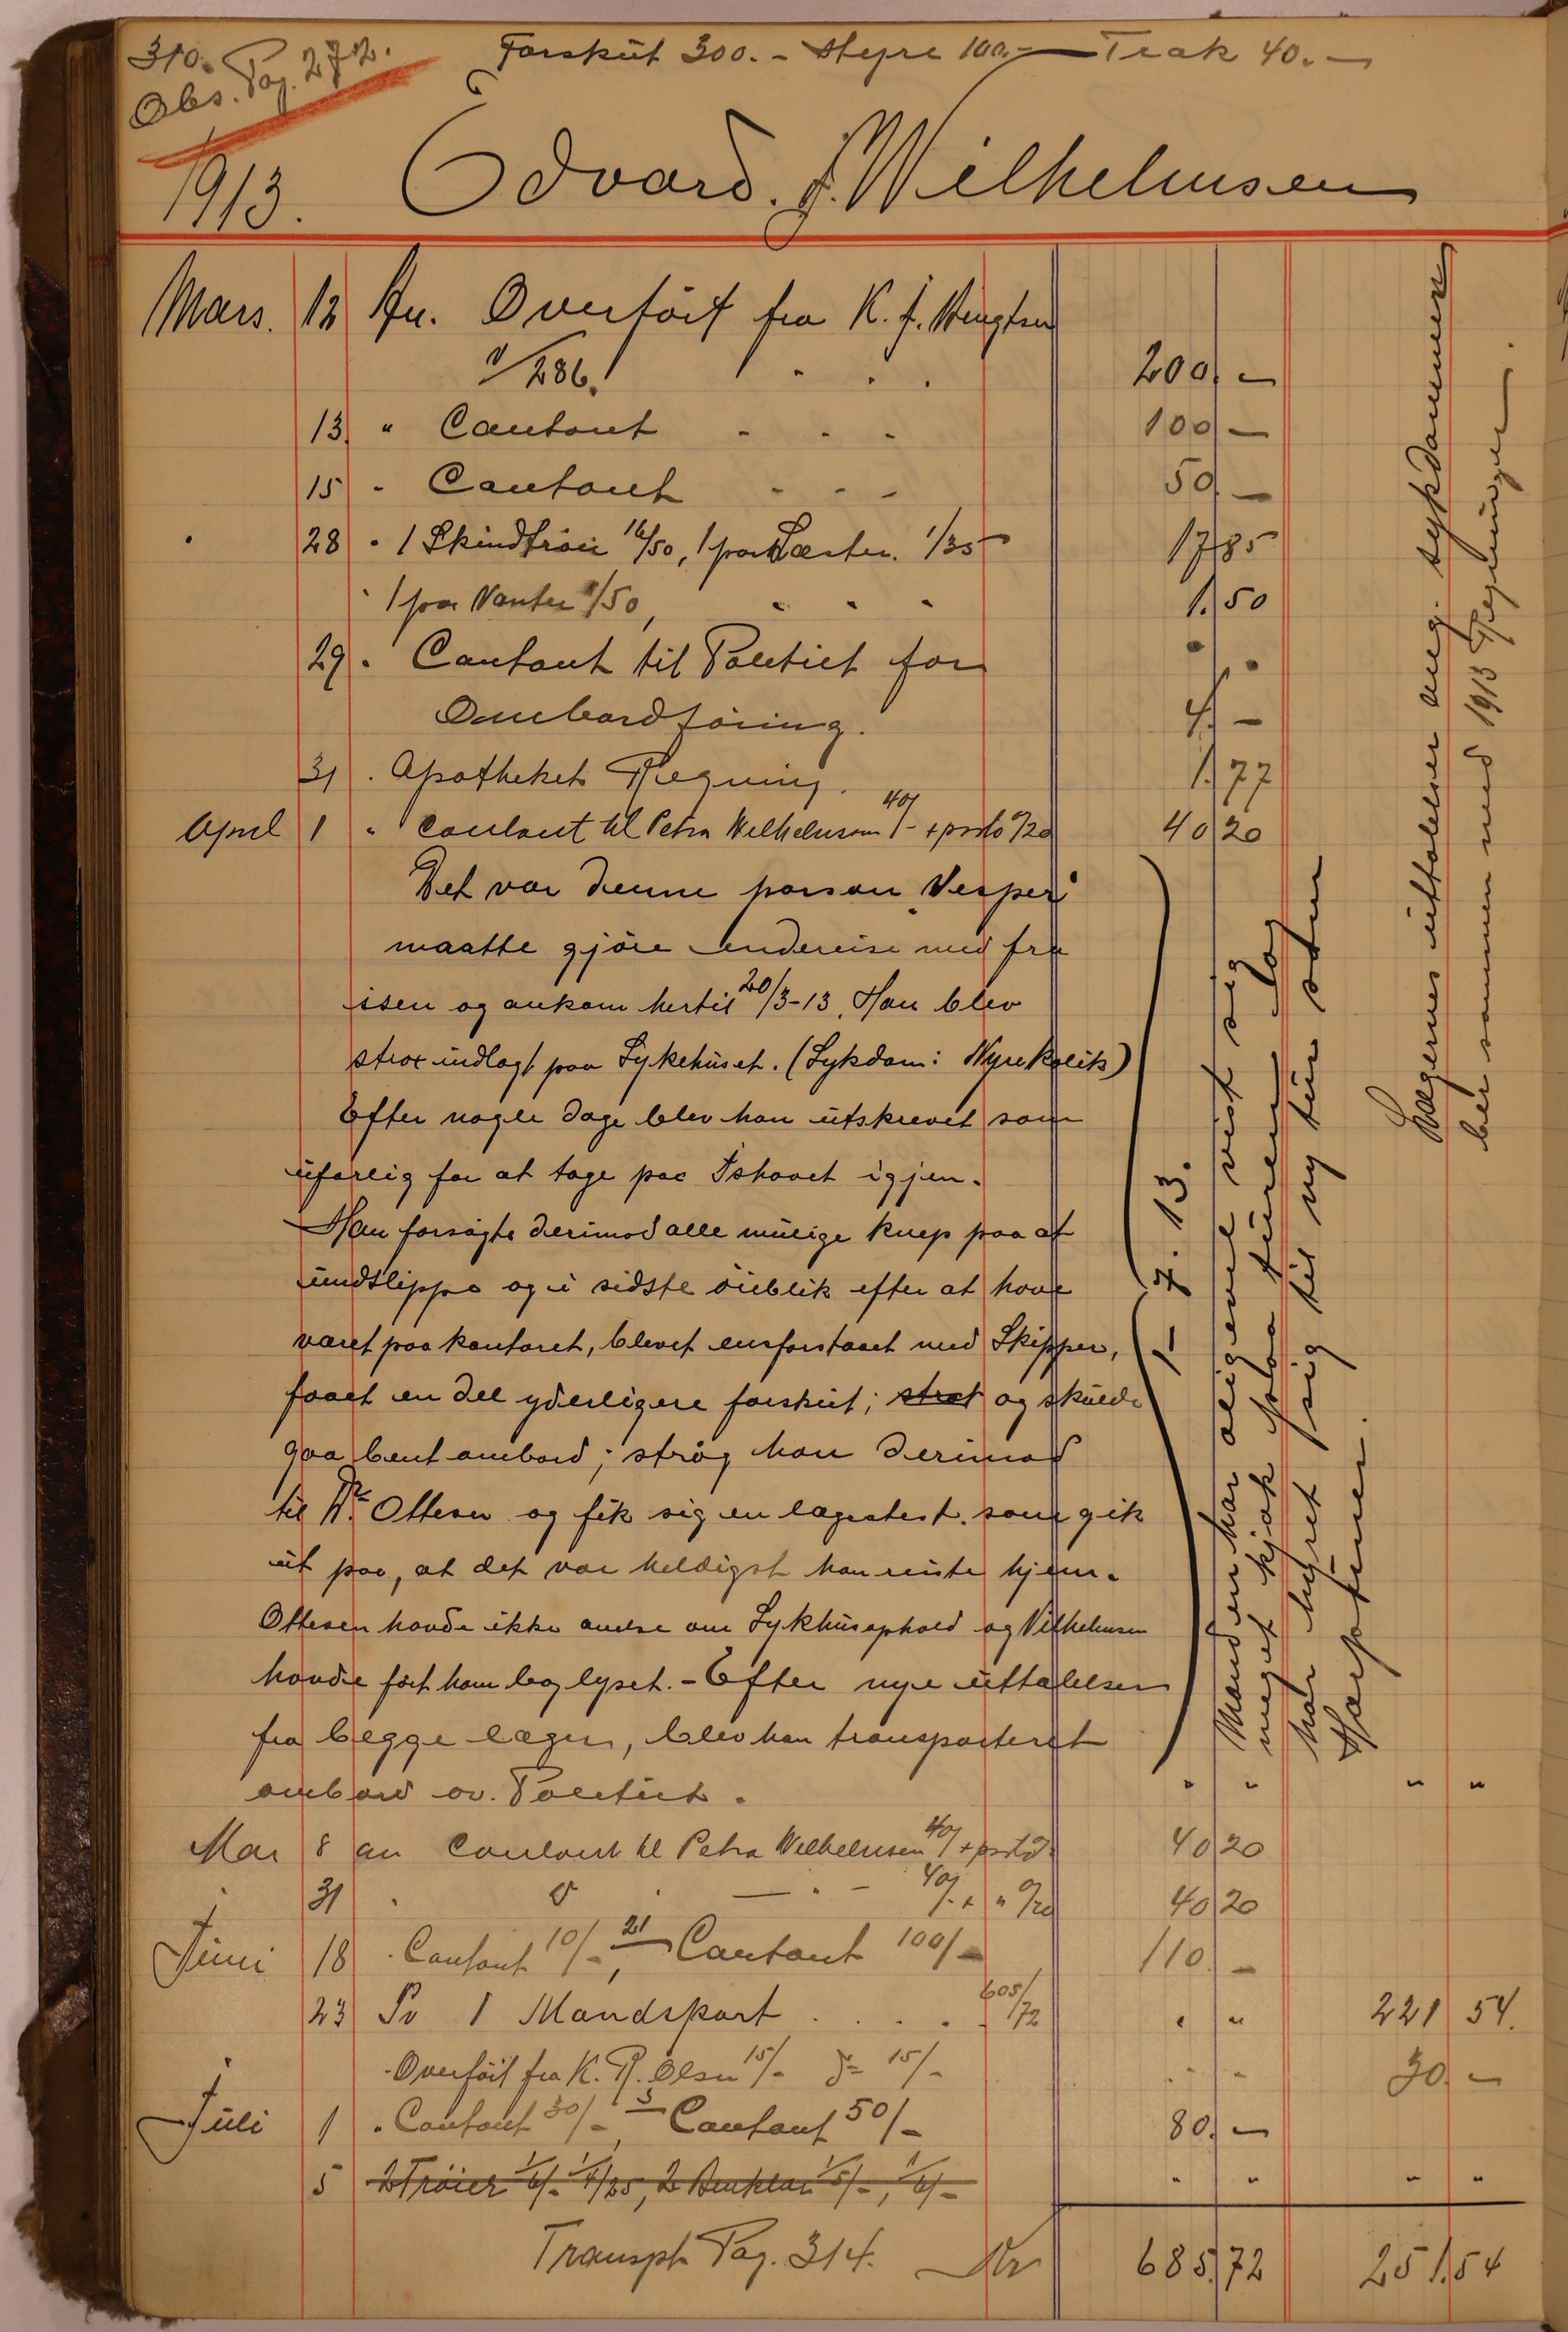 310. Forskut 300.- Hyre 100.- Trak 40.-
Obs. Pag. 272.
1913. Edvard. J. Wilhelmsen
Mars. 12 An. Overført fra K. J.
V/286. 200.-
13. " Contant 100.-
15 " Contant 50.-
28 " 1 Skindtrøie 16/50, 1 par Læster. 1/35 17.85
" 1 par Vanter 1/50, 1.50
29. " Contant til Politiet for
Ombordføring. 4.-
31 " Apothekets Regning. 1.77
April 1 " Contant til Petra Wilhelmsen 40/- + porto 0/20 40 20
Det var denne person "Vesper"
maatte gjøre endereise med fra
isen og ankom hertil 20/3-13. Han blev
strax indlagt paa Sykehuset. (Sykdom: Nyrekolik)
Efter nogle dage blev han utskrevet som
ufarlig for at tage paa Ishavet igjen.
Han forsøgte derimod alle mulige knep paa at
undslippe og i sidste øieblik efter at have
været paa kontoret, blevet ensforstaaet med Skipper,
faaet en del yderligere forskut; strøk og skulde
gaa bent ombord; strøg han derimod
til Dr. Ottesen og fik sig en lægeatest. som gik
ut paa, at det var heldigst han reiste hjem.
Ottesen havde ikke anelse om Sykhusophold og Vilhelmsen
havde ført ham bag lyset. - Efter nye uttalelser
fra begge læger, blev han transporteret
ombord av. Politiet.
1-7.13.
Manden har aligevel vist sig
meget kjæk paa turen og
har hyret sig til ny tur som
Harpuner.
Lægernes uttalelser ang. sykdommen
ber sammen med 1913 Regninger.
Mai 8 an Contant til Petra Wilhelmsen 40/- + porto 40 20
31 " " - " - 40/- + " 0/20 40 20
Juni 18 " Contant 10/-, 21 Contant 100/- 110.-
23 Pr 1 Mandspart 605/72 " " 221 54.
" Overført fra K. R. Olsen 15/- 15/- 30.-
Juli 1 " Contant 30/-, 5 Contant 50/- 80.-
5 2 Trøier 1/6/- 1/4/25, 2 1/5/-, 1/6/- " " " "
Transpt. Pag. 314. Kr 685.72 251.54